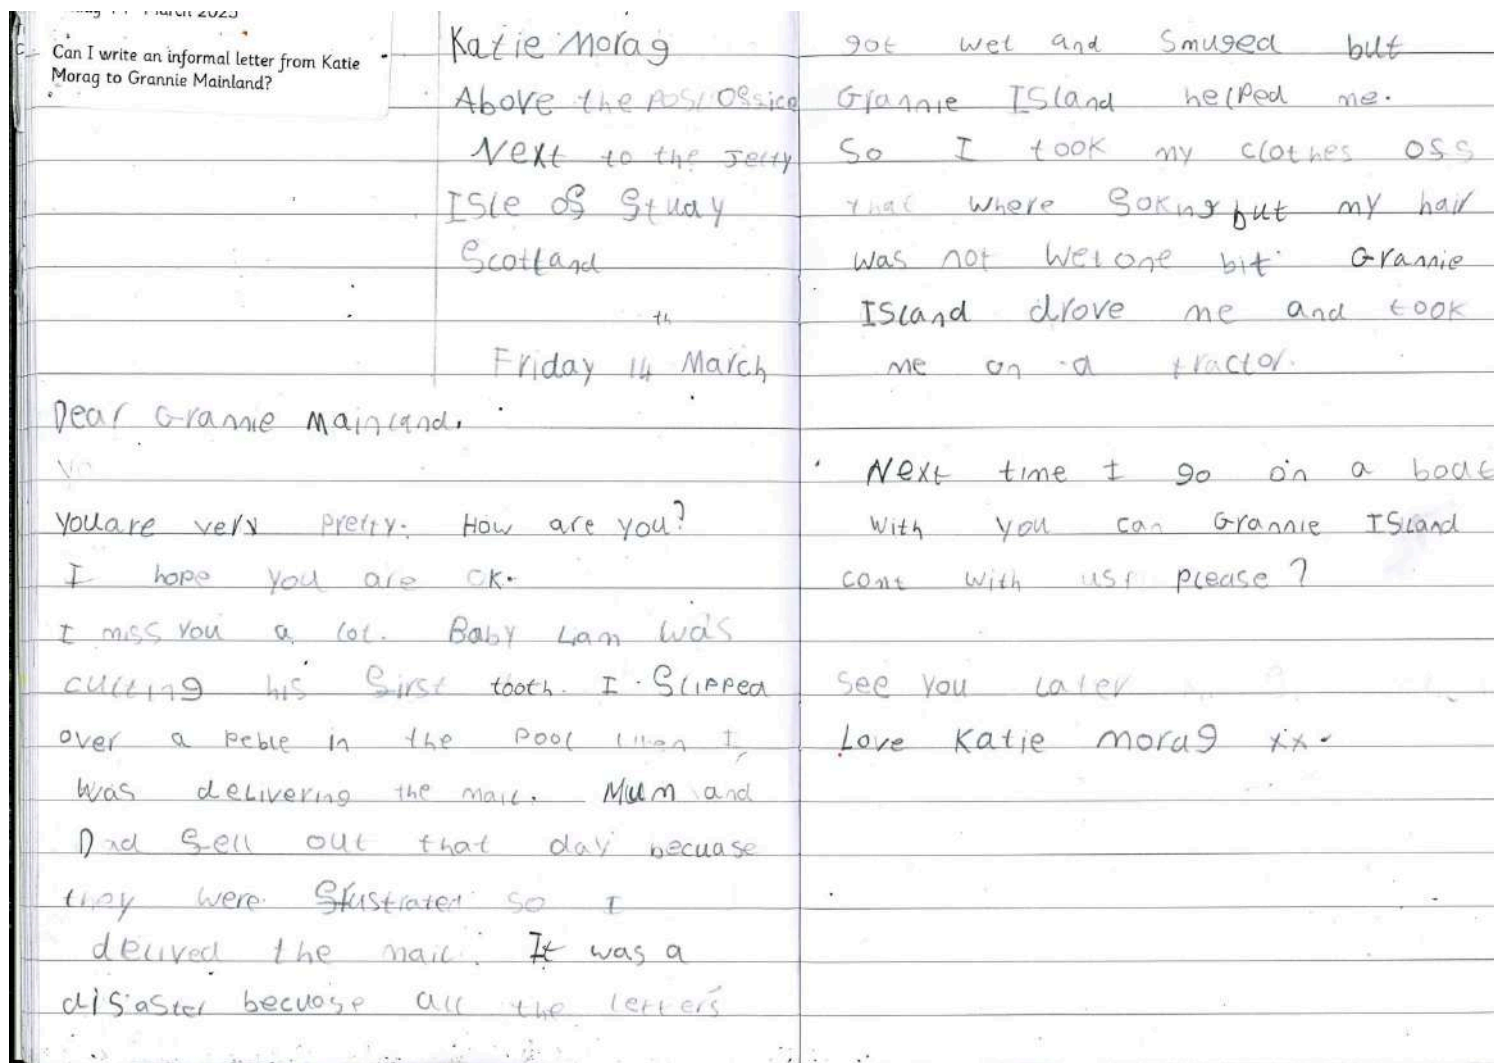 March 2025
Can I write an informal letter from Katie
Morag to Grannie Mainland?
Katie Morag
Above the Post Office
Next to the Jetty
Isle of Stuay
Scotland
th
Friday 14 March
Dear Grannie Mainland,
you are very pretty. How are you?
I hope you are OK.
I miss you a lot. Baby Liam was
cutting his first tooth. I slipped
over a peble in the pool when I
was delivering the mail. Mum and
Dad fell out that day becuase
they were frustrated so I
delived the mail. It was a
disaster becuase all the letters
got wet and smuged but
Grannie Island helped me.
So I took my clothes off
that where soking but my hair
was not wet one bit. Grannie
Island drove me and took
me on a tractor.
Next time I go on a boat
with you can Grannie Island
come with us please?
see you later
Love Katie morag xx.